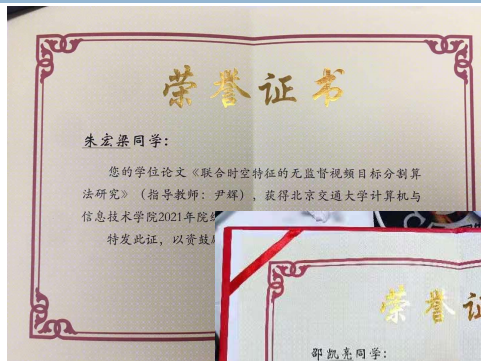 荣誉证书
朱宏梁同学：
您的学位论文《联合时空特征的无监督视频目标分割算
法研究》（指导教师：尹辉），获得北京交通大学计算机与
信息技术学院2021年院
特发此证，以资鼓
荣誉证
邵凯亮同学：